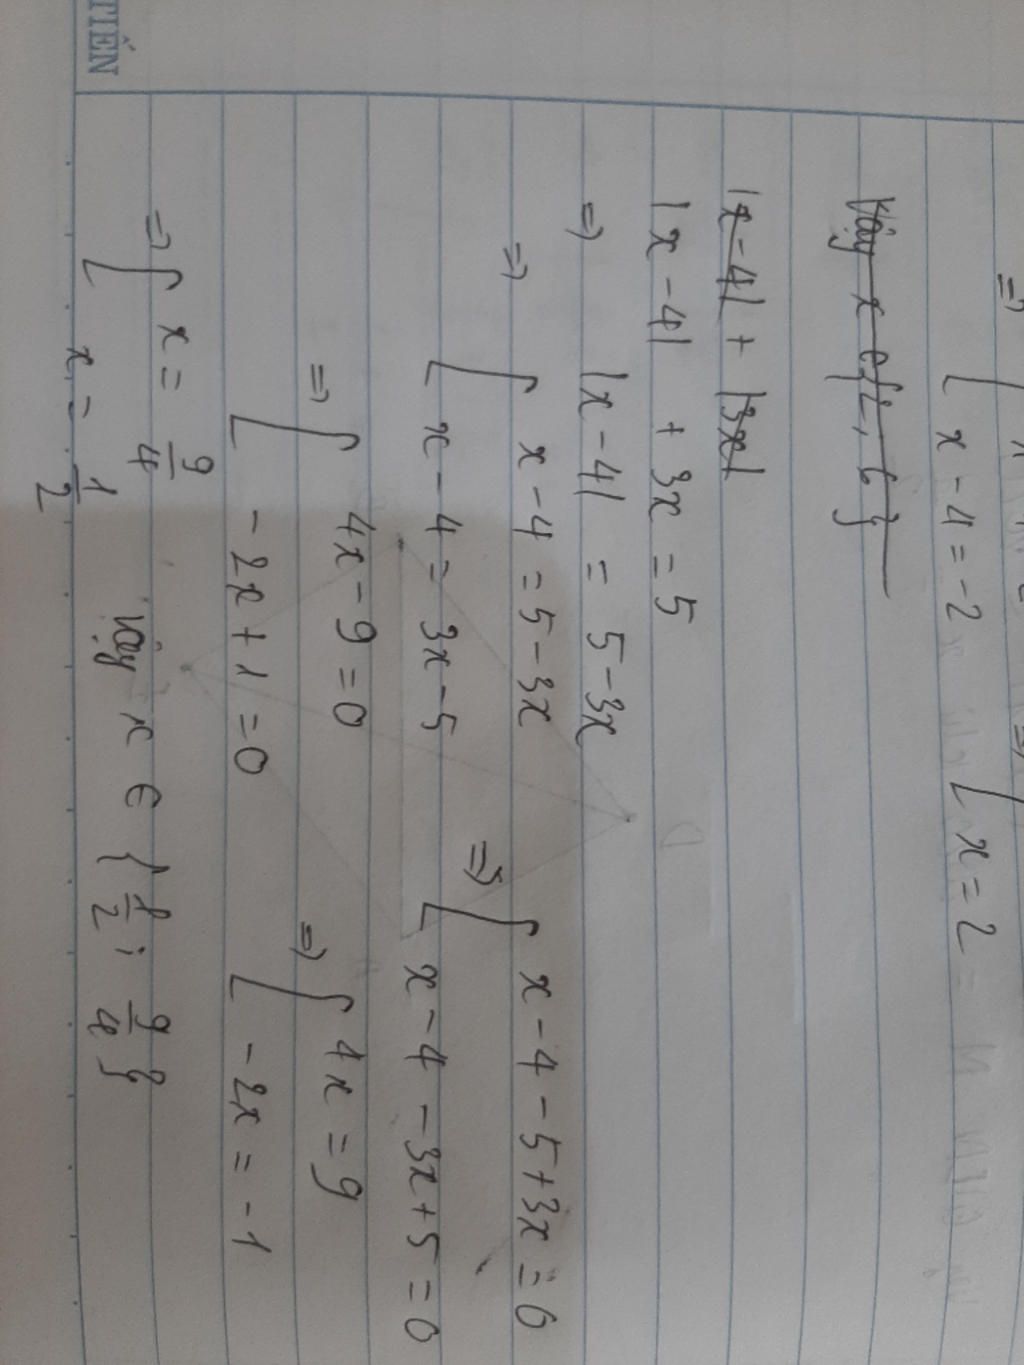 TIẾN
=>
[ x - 4 = -2
[ x = 2
Vậy x ∈ {2, 6}
|x - 4| + |3x|
|x - 4| + 3x = 5
=> |x - 4| = 5 - 3x
=> [ x - 4 = 5 - 3x => [ x - 4 - 5 + 3x = 0
x - 4 = 3x - 5 x - 4 - 3x + 5 = 0
=> [ 4x - 9 = 0 => [ 4x = 9
- 2x + 1 = 0 - 2x = - 1
=> [ x = 9/4
x = 1/2 Vậy x ∈ { 1/2 ; 9/4 }